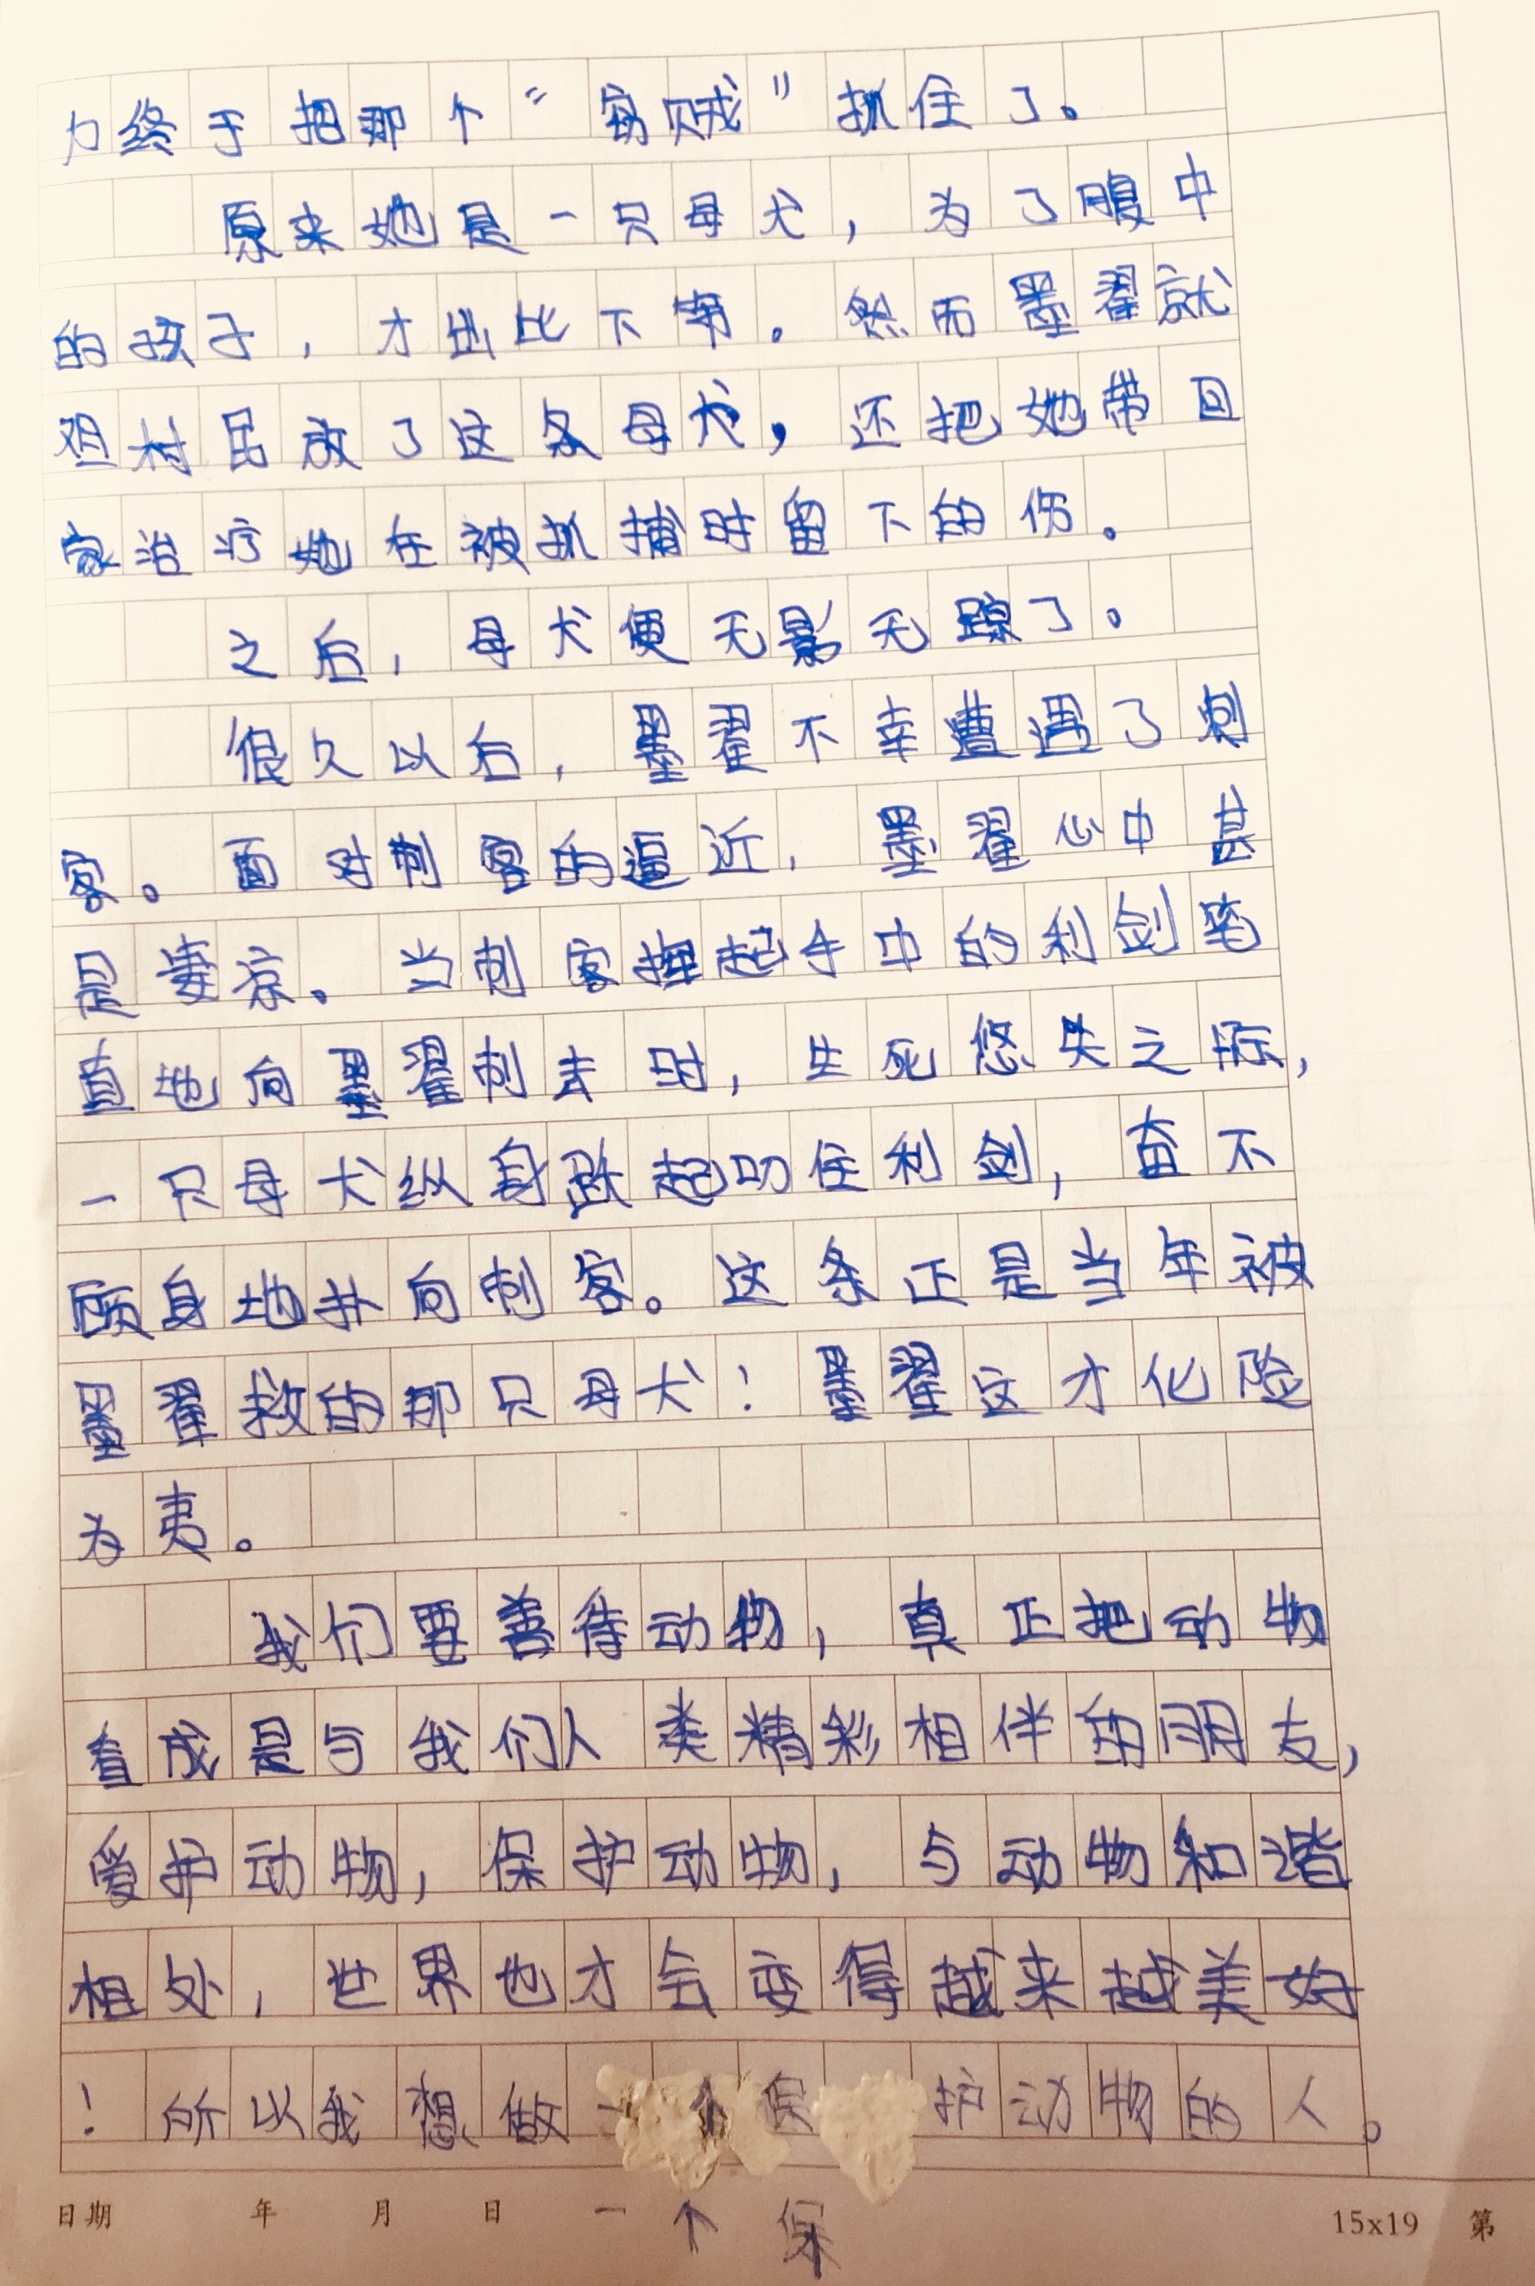 力终于把那个“窃贼”抓住了。
原来她是一只母犬，为了腹中
的孩子，才出此下策。然而墨翟就
劝村民放了这条母犬，还把她带回
家治疗她在被抓捕时留下的伤。
之后，母犬便无影无踪了。
很久以后，墨翟不幸遭遇了刺
客。面对刺客的逼近，墨翟心中甚
是凄凉。当刺客挥起手中的利剑笔
直地向墨翟刺去时，生死悠失之际，
一只母犬纵身跃起叨住利剑，奋不
顾身地扑向刺客。这条正是当年被
墨翟救的那只母犬！墨翟这才化险
为夷。
我们要善待动物，真正把动物
看成是与我们人类精彩相伴的朋友，
爱护动物，保护动物，与动物和谐
相处，世界也才会变得越来越美好
！所以我想做一个保护动物的人。
日期 年 月 日 一个保 15x19 第